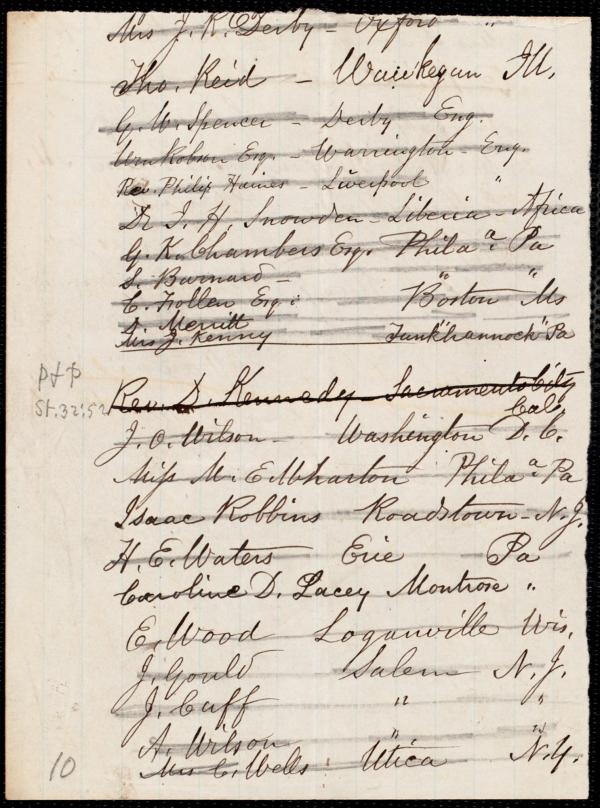 Mrs J. K. Derby - Oxford "
Tho. Reid - Waukegan Ill.
G. W. Spencer - Derby Eng.
Wm Robson Esq. - Warrington - Eng.
Rev. Philip Haines - Liverpool "
Dr J. H. Snowden - Liberia - Africa
G. K. Chambers Esq. Philaᵃ. Pa
S. Barnard - " "
C. Follen Esq. Boston Ms
D. Merritt " "
Mrs J. Kenny Tunkhannock Pa
Rev. D. Kennedy - Sacramento City
Cal.
P & P
St. 32:52
J. O. Wilson - Washington D. C.
Miss M. E. Wharton Philaᵃ. Pa
Isaac Robbins Roadstown - N. J.
H. E. Waters Erie Pa
Caroline D. Lacey Montrose "
E. Wood Loganville Wis.
J. Gould Salem N. J.
J. Cuff " "
A. Wilson " "
Mrs C. Wells Utica N. Y.
10